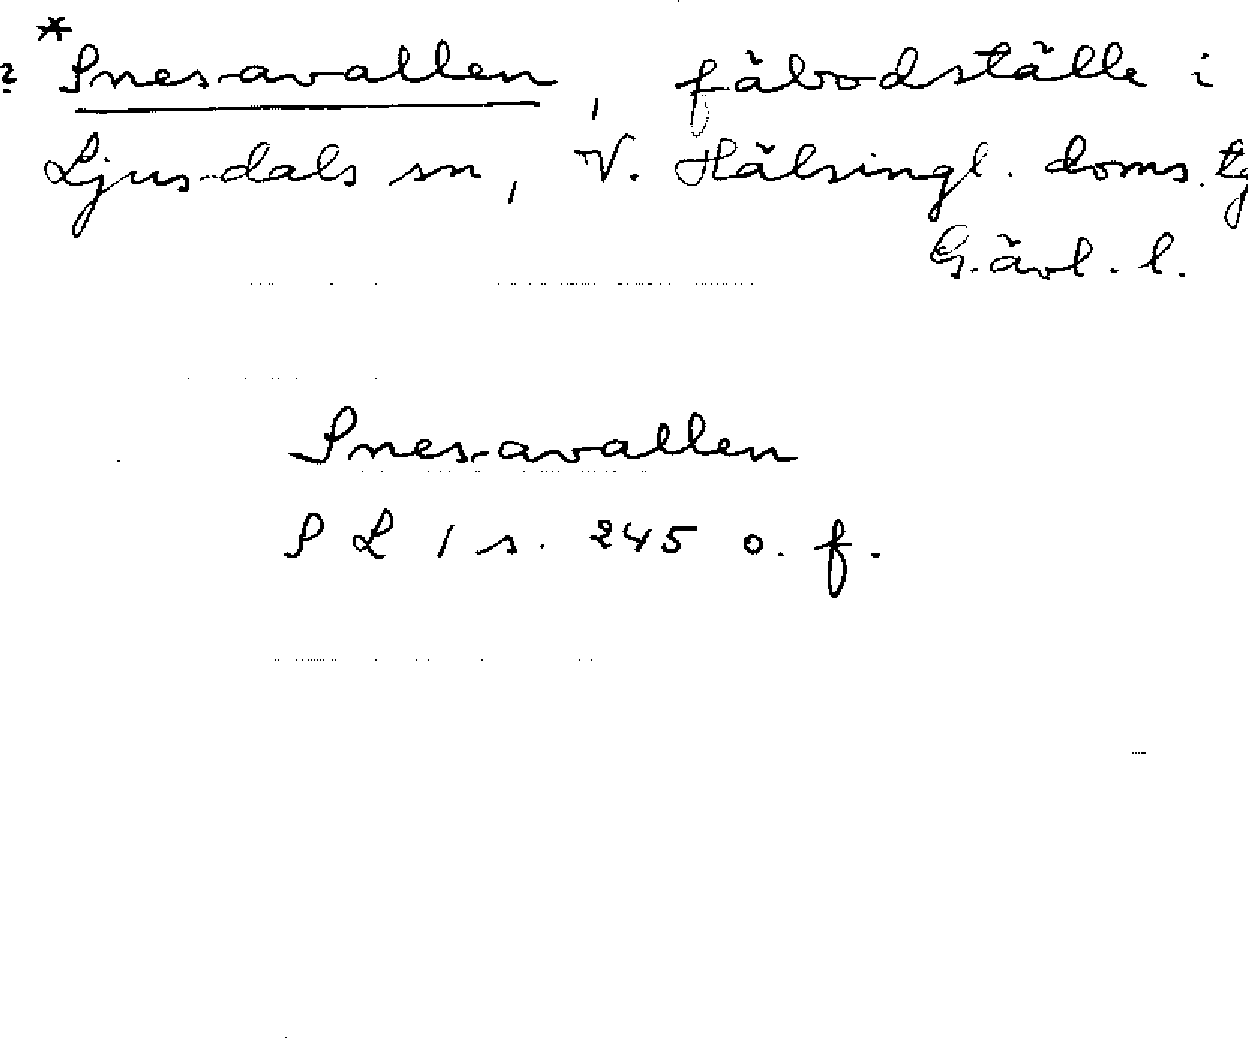 ? *Snesavallen, fäbodställe i
Ljusdals sn, V. Hälsingl. doms. tg
Gävl. l.
Snesavallen
S L 1 s. 245 o. f.